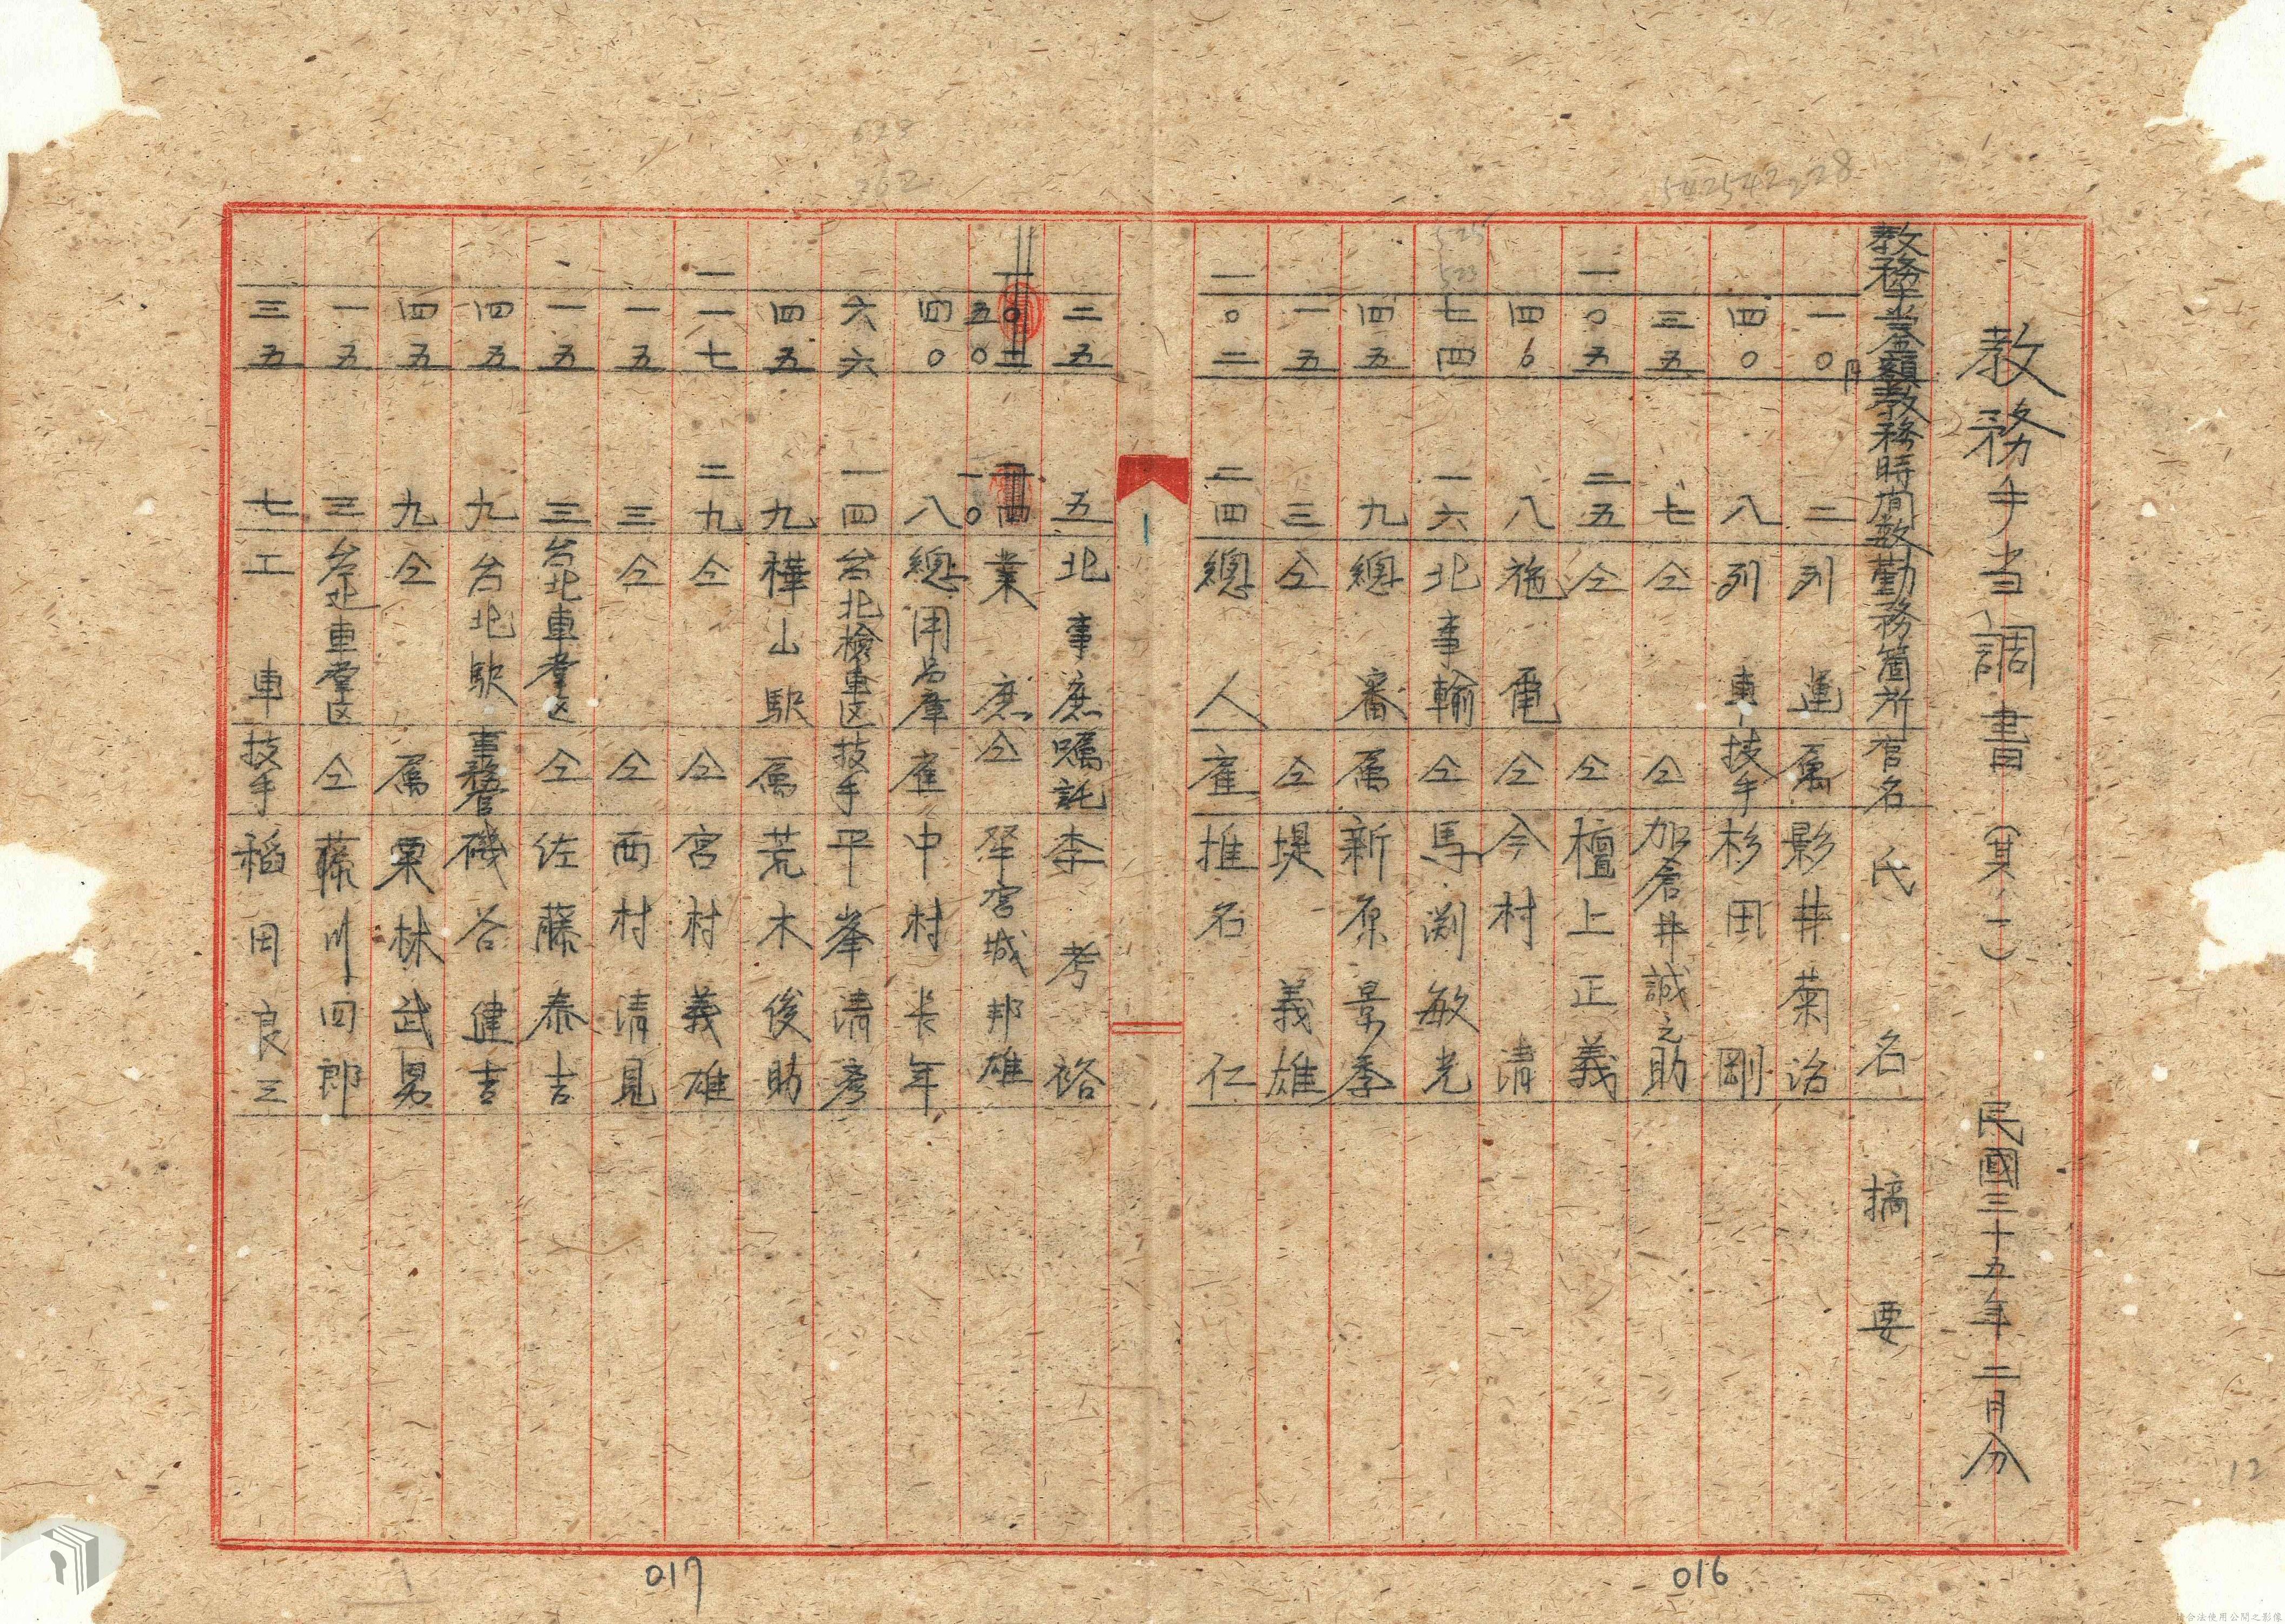 教務手当調書（其ノ一） 民國三十五年二月分
教務手当額 教務時間数 勤務箇所 官名 氏名 摘要
一〇円 二 列 運 属 影井菊治
四〇 八 列 車 技手 杉田 剛
三五 七 仝 仝 加倉井誠之助
一〇五 二五 仝 仝 檀上正義
四〇 八 施 電 仝 今村 清
七四 一六 北事輸 仝 馬渕敏光
四五 九 總 審 属 新原景季
一五 三 仝 仝 堤 義雄
一〇二 二四 總 人 雇 推名 仁
二五 五 北事庶 嘱託 李 考裕
五〇 一〇 業 庶 仝 宮城邦雄
四〇 八 總 用品庫 雇 中村長年
六六 一四 台北檢車区 技手 平峯清彦
四五 九 樺山駅 属 荒木俊助
一一七 二九 仝 仝 宮村義雄
一五 三 仝 仝 西村清見
一五 三 台北車掌区 仝 佐藤泰吉
四五 九 台北駅 事務官 磯谷健吉
四五 九 仝 属 栗林武男
一五 三 台北車掌区 仝 藤川四郎
三五 七 工 車 技手 稻田良三
542542228
523
262
525
523
12
016
017